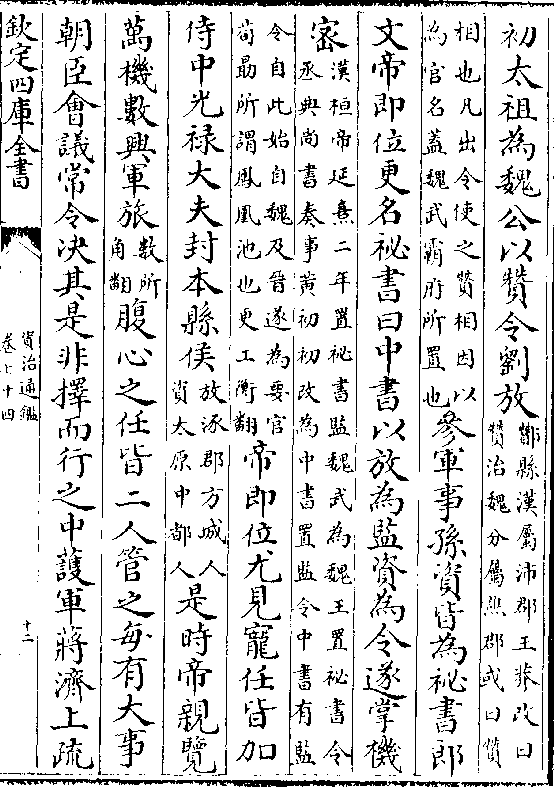 初太祖為魏公以贊令劉放酇縣漢屬沛郡王莽改曰
贊治魏分屬譙郡或曰贊
相也凡出令使之贊相因以
為官名蓋魏武霸府所置也參軍事孫資皆為祕書郎
文帝即位更名祕書曰中書以放為監資為令遂掌機
密漢桓帝延熹二年置祕書監魏武為魏王置祕書令
丞典尚書奏事黃初初改為中書置監令中書有監
令自此始自魏及晉遂為要官
荀勗所謂鳳凰池也更工衡翻帝即位尤見寵任皆加
侍中光祿大夫封本縣侯放涿郡方城人
資太原中都人是時帝親覽
萬機數興軍旅數所
角翻腹心之任皆二人管之每有大事
朝臣會議常令決其是非擇而行之中護軍蔣濟上疏
欽定四庫全書
資治通鑑
卷七十四
十二